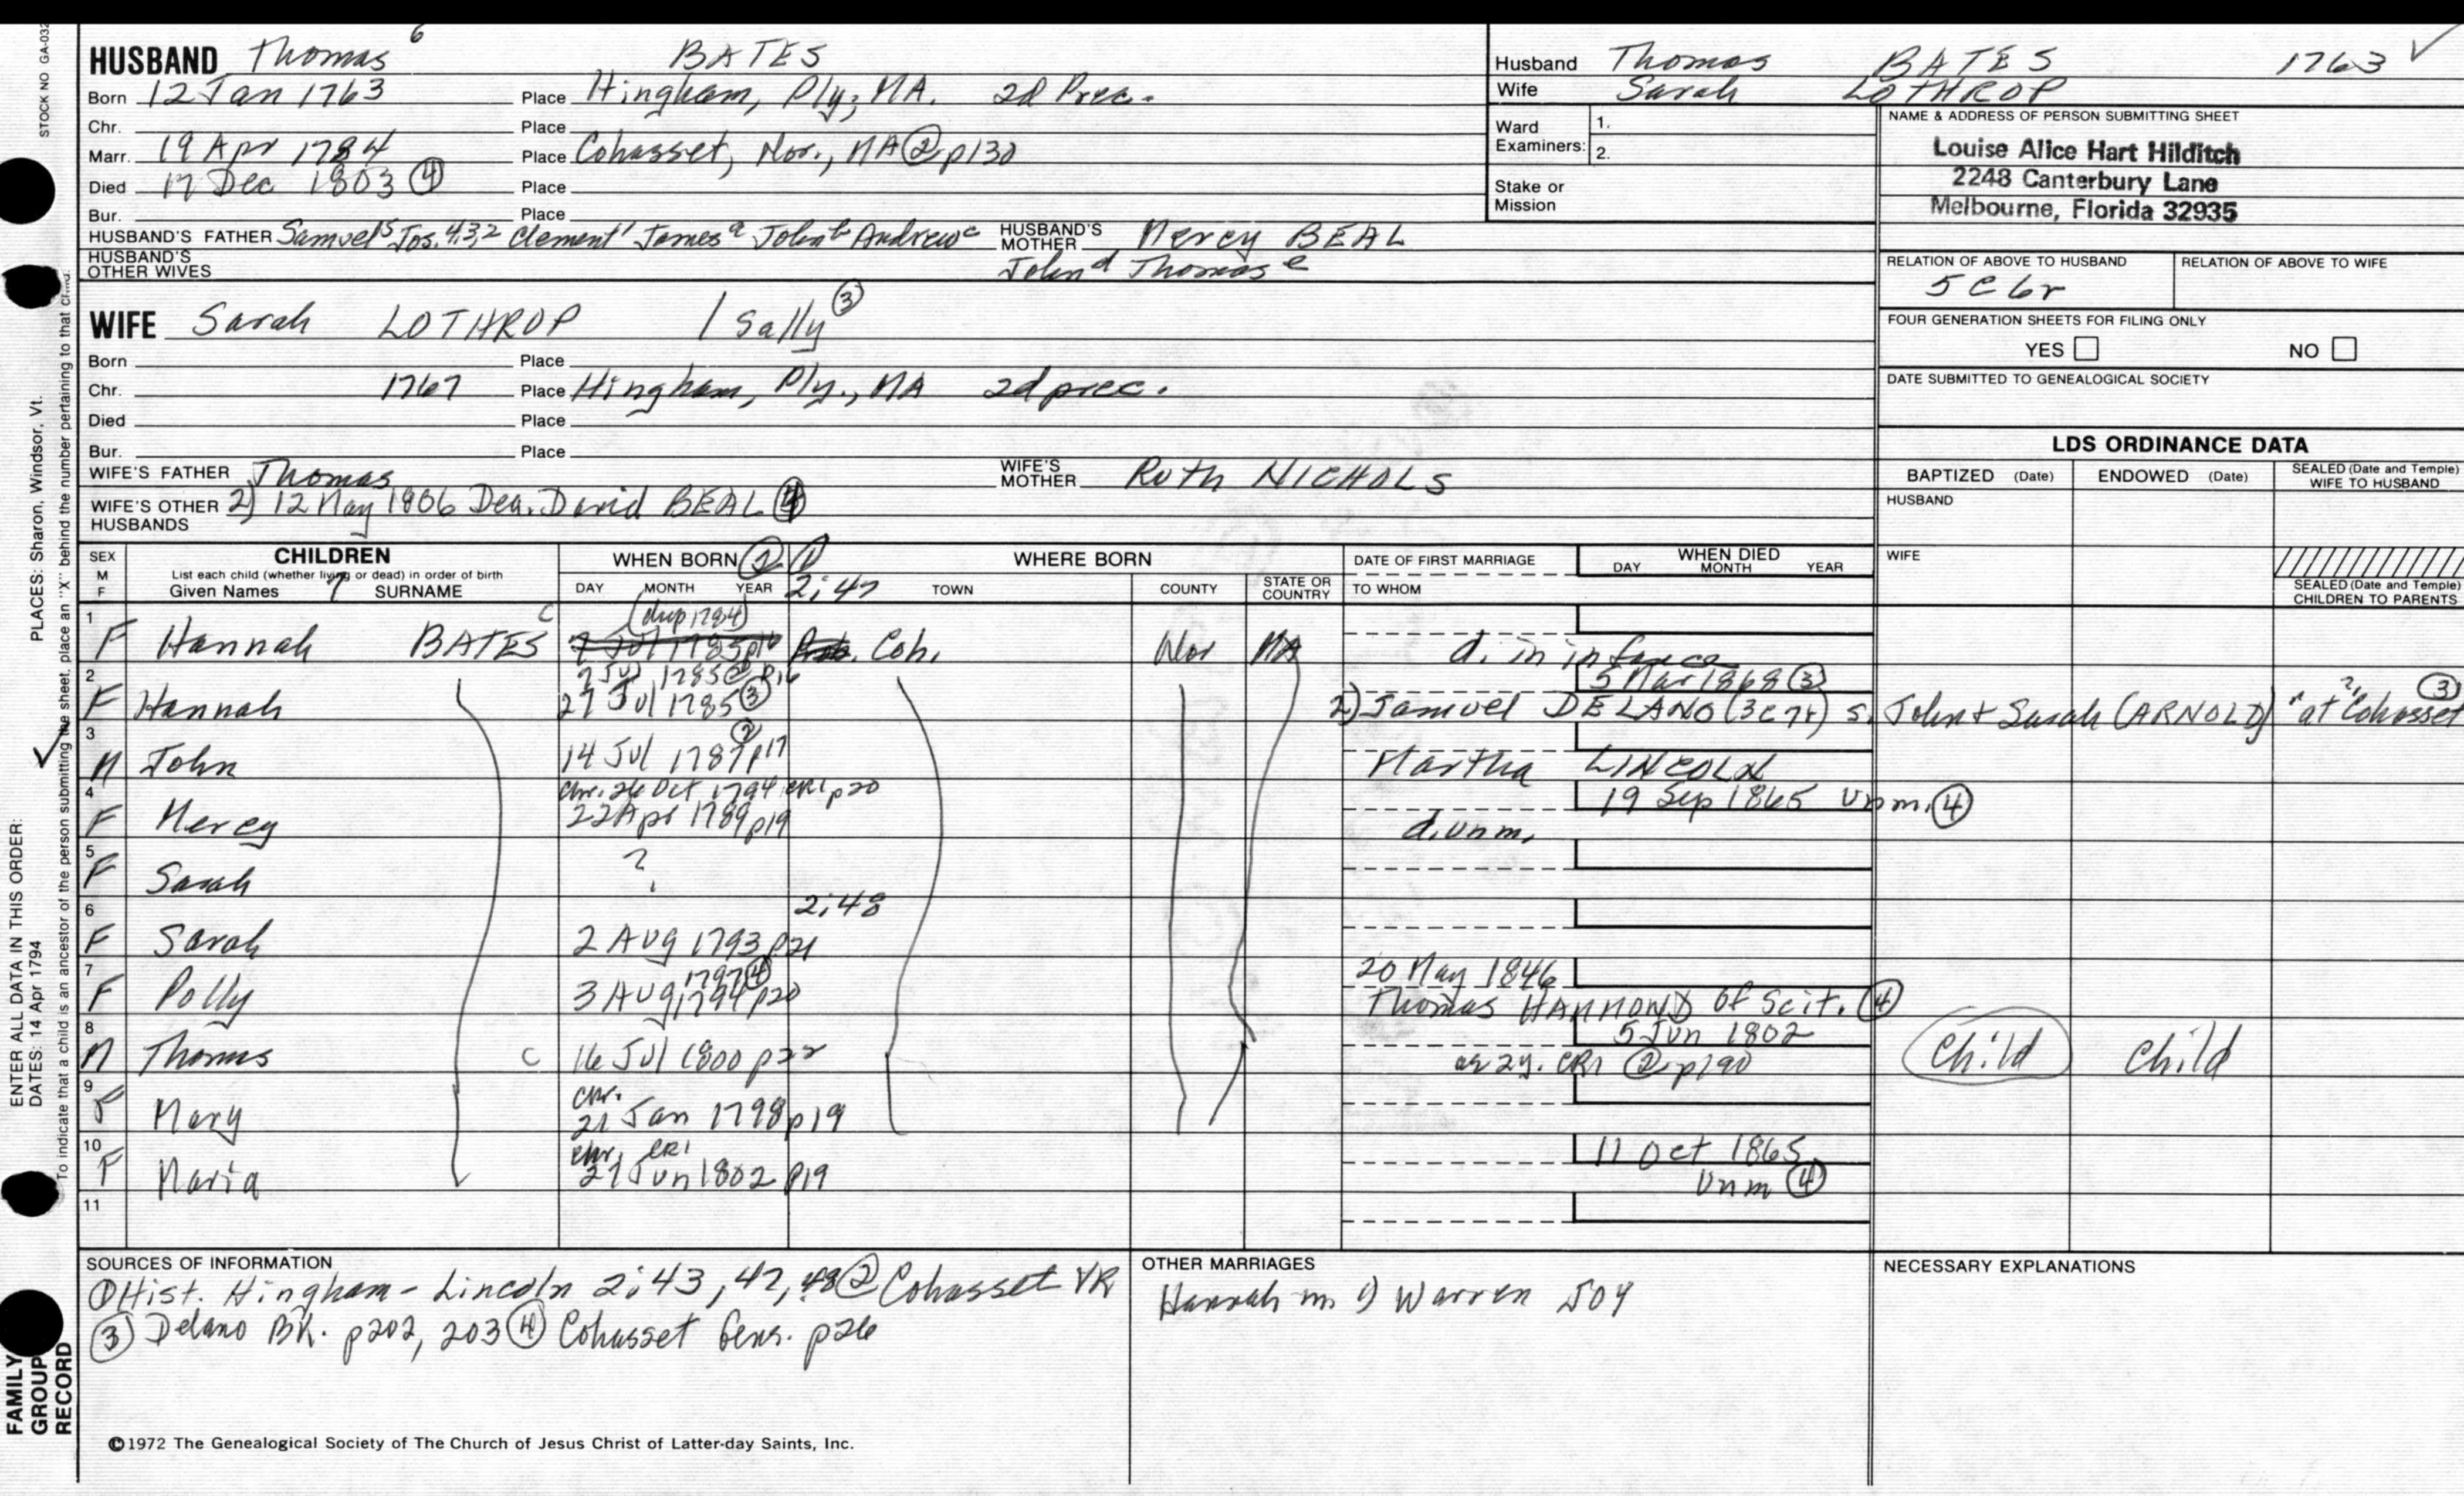 STOCK NO GA-032
HUSBAND Thomas 6 BATES
Born 12 Jan 1763 Place Hingham, Ply, MA. 2d Prec.
Chr. Place
Marr. 19 Apr 1784 Place Cohasset, Nor., MA ② p130
Died 17 Dec 1803 ④ Place
Bur. Place
HUSBAND'S FATHER Samuel5 Jos. 4,3,2 Clement1 James a John b Andrew c HUSBAND'S MOTHER Mercy BEAL
HUSBAND'S OTHER WIVES John d Thomas e
Husband Thomas BATES 1763 ✓
Wife Sarah LOTHROP
Ward Examiners: 1.
2.
Stake or Mission
NAME & ADDRESS OF PERSON SUBMITTING SHEET
Louise Alice Hart Hilditch
2248 Canterbury Lane
Melbourne, Florida 32935
RELATION OF ABOVE TO HUSBAND RELATION OF ABOVE TO WIFE
5 C 6r
FOUR GENERATION SHEETS FOR FILING ONLY
YES NO
DATE SUBMITTED TO GENEALOGICAL SOCIETY
WIFE Sarah LOTHROP / Sally ③
Born Place
Chr. 1767 Place Hingham, Ply., MA 2d prec.
Died Place
Bur. Place
WIFE'S FATHER Thomas WIFE'S MOTHER Ruth NICHOLS
WIFE'S OTHER HUSBANDS 2) 12 May 1806 Dea. David BEAL ④
LDS ORDINANCE DATA
BAPTIZED (Date) ENDOWED (Date) SEALED (Date and Temple) WIFE TO HUSBAND
HUSBAND
WIFE
SEALED (Date and Temple) CHILDREN TO PARENTS
SEX M F
CHILDREN
List each child (whether living or dead) in order of birth
Given Names 7 SURNAME
WHEN BORN ② ①
DAY MONTH YEAR 2:47
WHERE BORN
TOWN COUNTY STATE OR COUNTRY
DATE OF FIRST MARRIAGE
TO WHOM
WHEN DIED
DAY MONTH YEAR
1 F Hannah BATES C (dup 1784) 7 Jul 1785 p16 Coh. Nor MA d. in infance
2 F Hannah 7 Jul 1785 ② p16 27 Jul 1785 ③ 5 Mar 1868 ③ 2) Samuel DELANO (3C7r) s. John + Sarah (ARNOLD) "at Cohasset ?" ③
3 M John 14 Jul 1787 ② p17 Martha LINCOLN
4 F Mercy chr. 26 Oct 1794 CR1 p20 22 Apr 1789 p19 19 Sep 1865 Unm. ④ d. unm.
5 F Sarah ?
6 F Sarah 2 Aug 1793 p21 2:48
7 F Polly 3 Aug 1794 p20 1797 ④ 20 May 1846 Thomas HAMMOND of Scit. ④
8 M Thomas C 16 Jul 1800 p22 5 Jun 1802 ae 2y. CR1 ② p190 Child Child
9 F Mary chr. 21 Jan 1798 p19
10 F Maria chr. CR1 27 Jun 1802 p19 11 Oct 1865 Unm ④
11
SOURCES OF INFORMATION
① Hist. Hingham - Lincoln 2:43, 47, 48 ② Cohasset VR
③ Delano BK. p202, 203 ④ Cohasset Gens. p26
OTHER MARRIAGES
Hannah m 1) Warren JOY
NECESSARY EXPLANATIONS
©1972 The Genealogical Society of The Church of Jesus Christ of Latter-day Saints, Inc.
FAMILY GROUP RECORD
ENTER ALL DATA IN THIS ORDER:
DATES: 14 Apr 1794
PLACES: Sharon, Windsor, Vt.
To indicate that a child is an ancestor of the person submitting the sheet, place an "X" behind the number pertaining to that child.